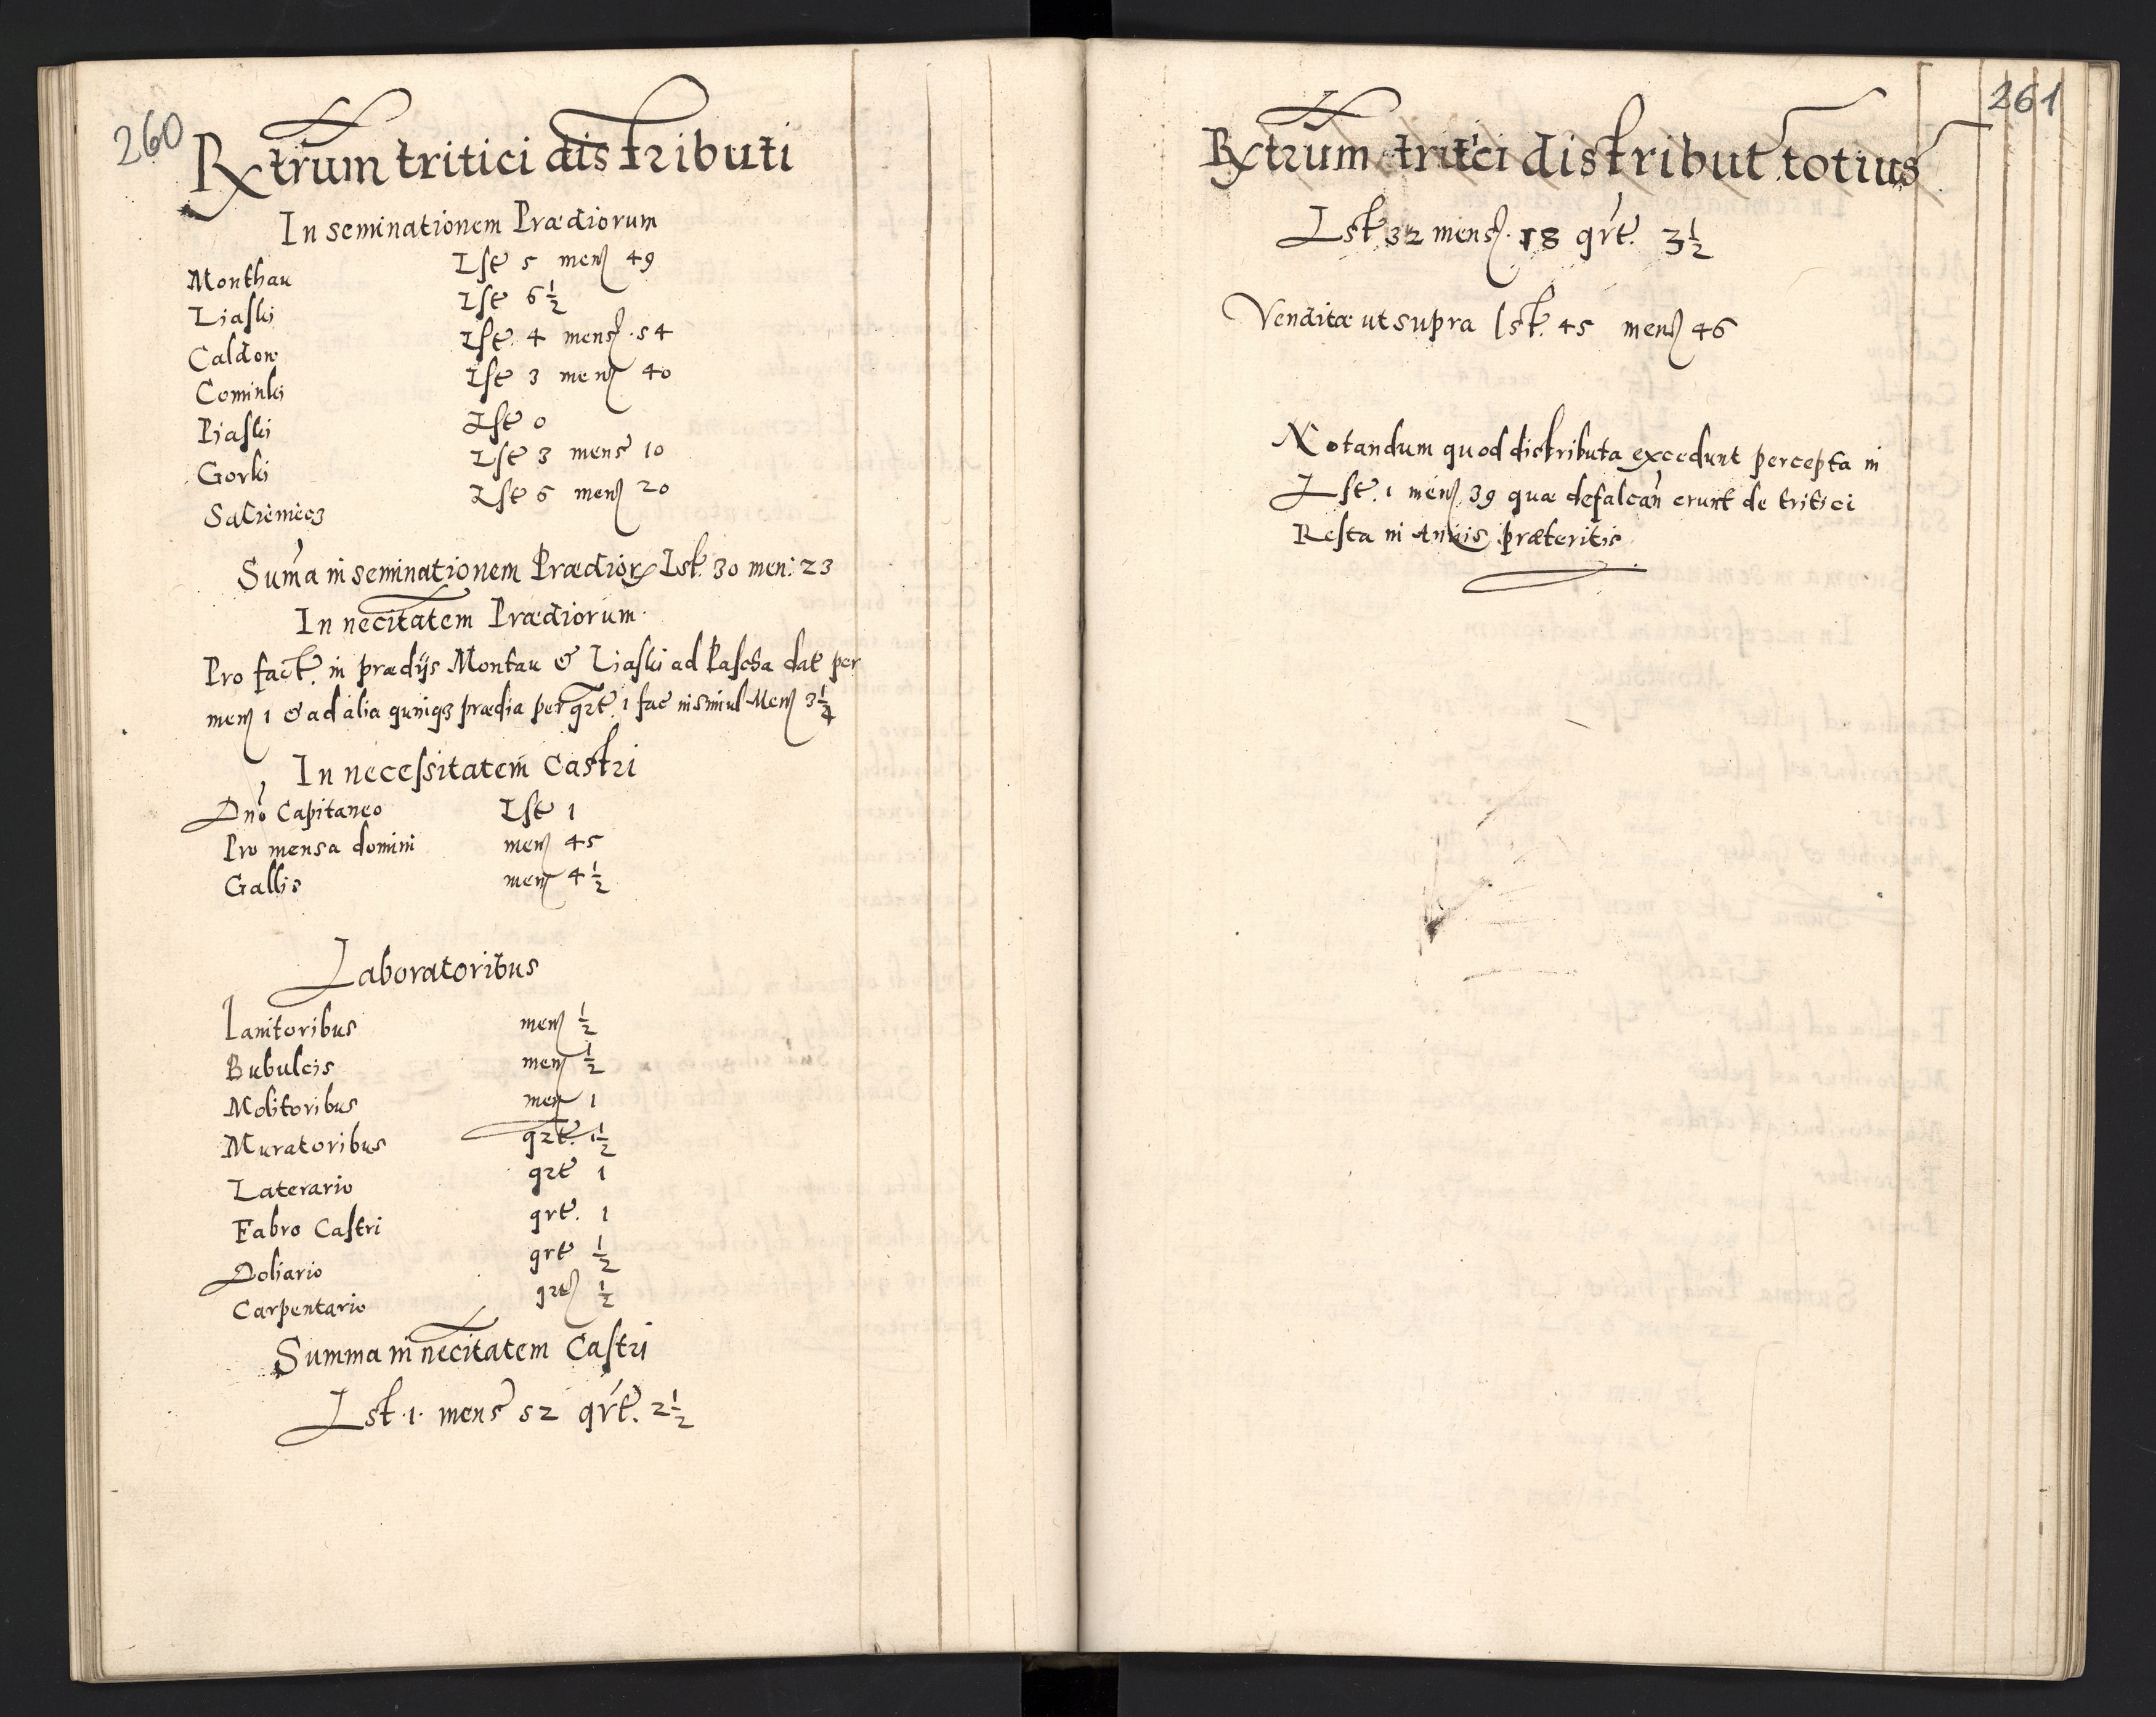 260
Rxtrum tritici distributi
In seminationem Prædiorum
Monthau Lst 5 mens 49
Liaski Lst 6 1/2
Caldow Lst. 4 mens. 54
Cominki Lst 3 mens 40
Piaski Lst 0
Gorki Lst 3 mens 10
Lst 6 mens 20
Suma in seminationem Prædior Lst. 30 men: 23
In necitatem Prædiorum.
Pro fact. in prædijs Montau & Liaski ad Pascha dat per
mens 1 & ad alia quinq3 prædia per qrt. 1 fac insimul Mens 3 1/4
In necessitatem Castri
Dno Capitaneo Lst 1
Pro mensa domini mens 45
Gallis mens 4 1/2
Laboratoribus
Ianitoribus mens 1/2
Bubulcis mens 1/2
Molitoribus mens 1
Muratoribus qrt. 1 1/2
Laterario qrt 1
Fabro Castri qrt. 1
Doliario qrt 1/2
Carpentario qrt 1/2
Summa in necitatem Castri
Lst. 1. mens 52 qrt. 2 1/2
261
Rxtrum tritici distribut totius
Lst 32 mens. 18 qrt. 3 1/2
Venditæ ut supra lst. 45 mens 46
Notandum quod distributa excedunt percepta in
Lst. 1 mens 39 quæ defalcan erunt de tritici
Resta in Annis præteritis